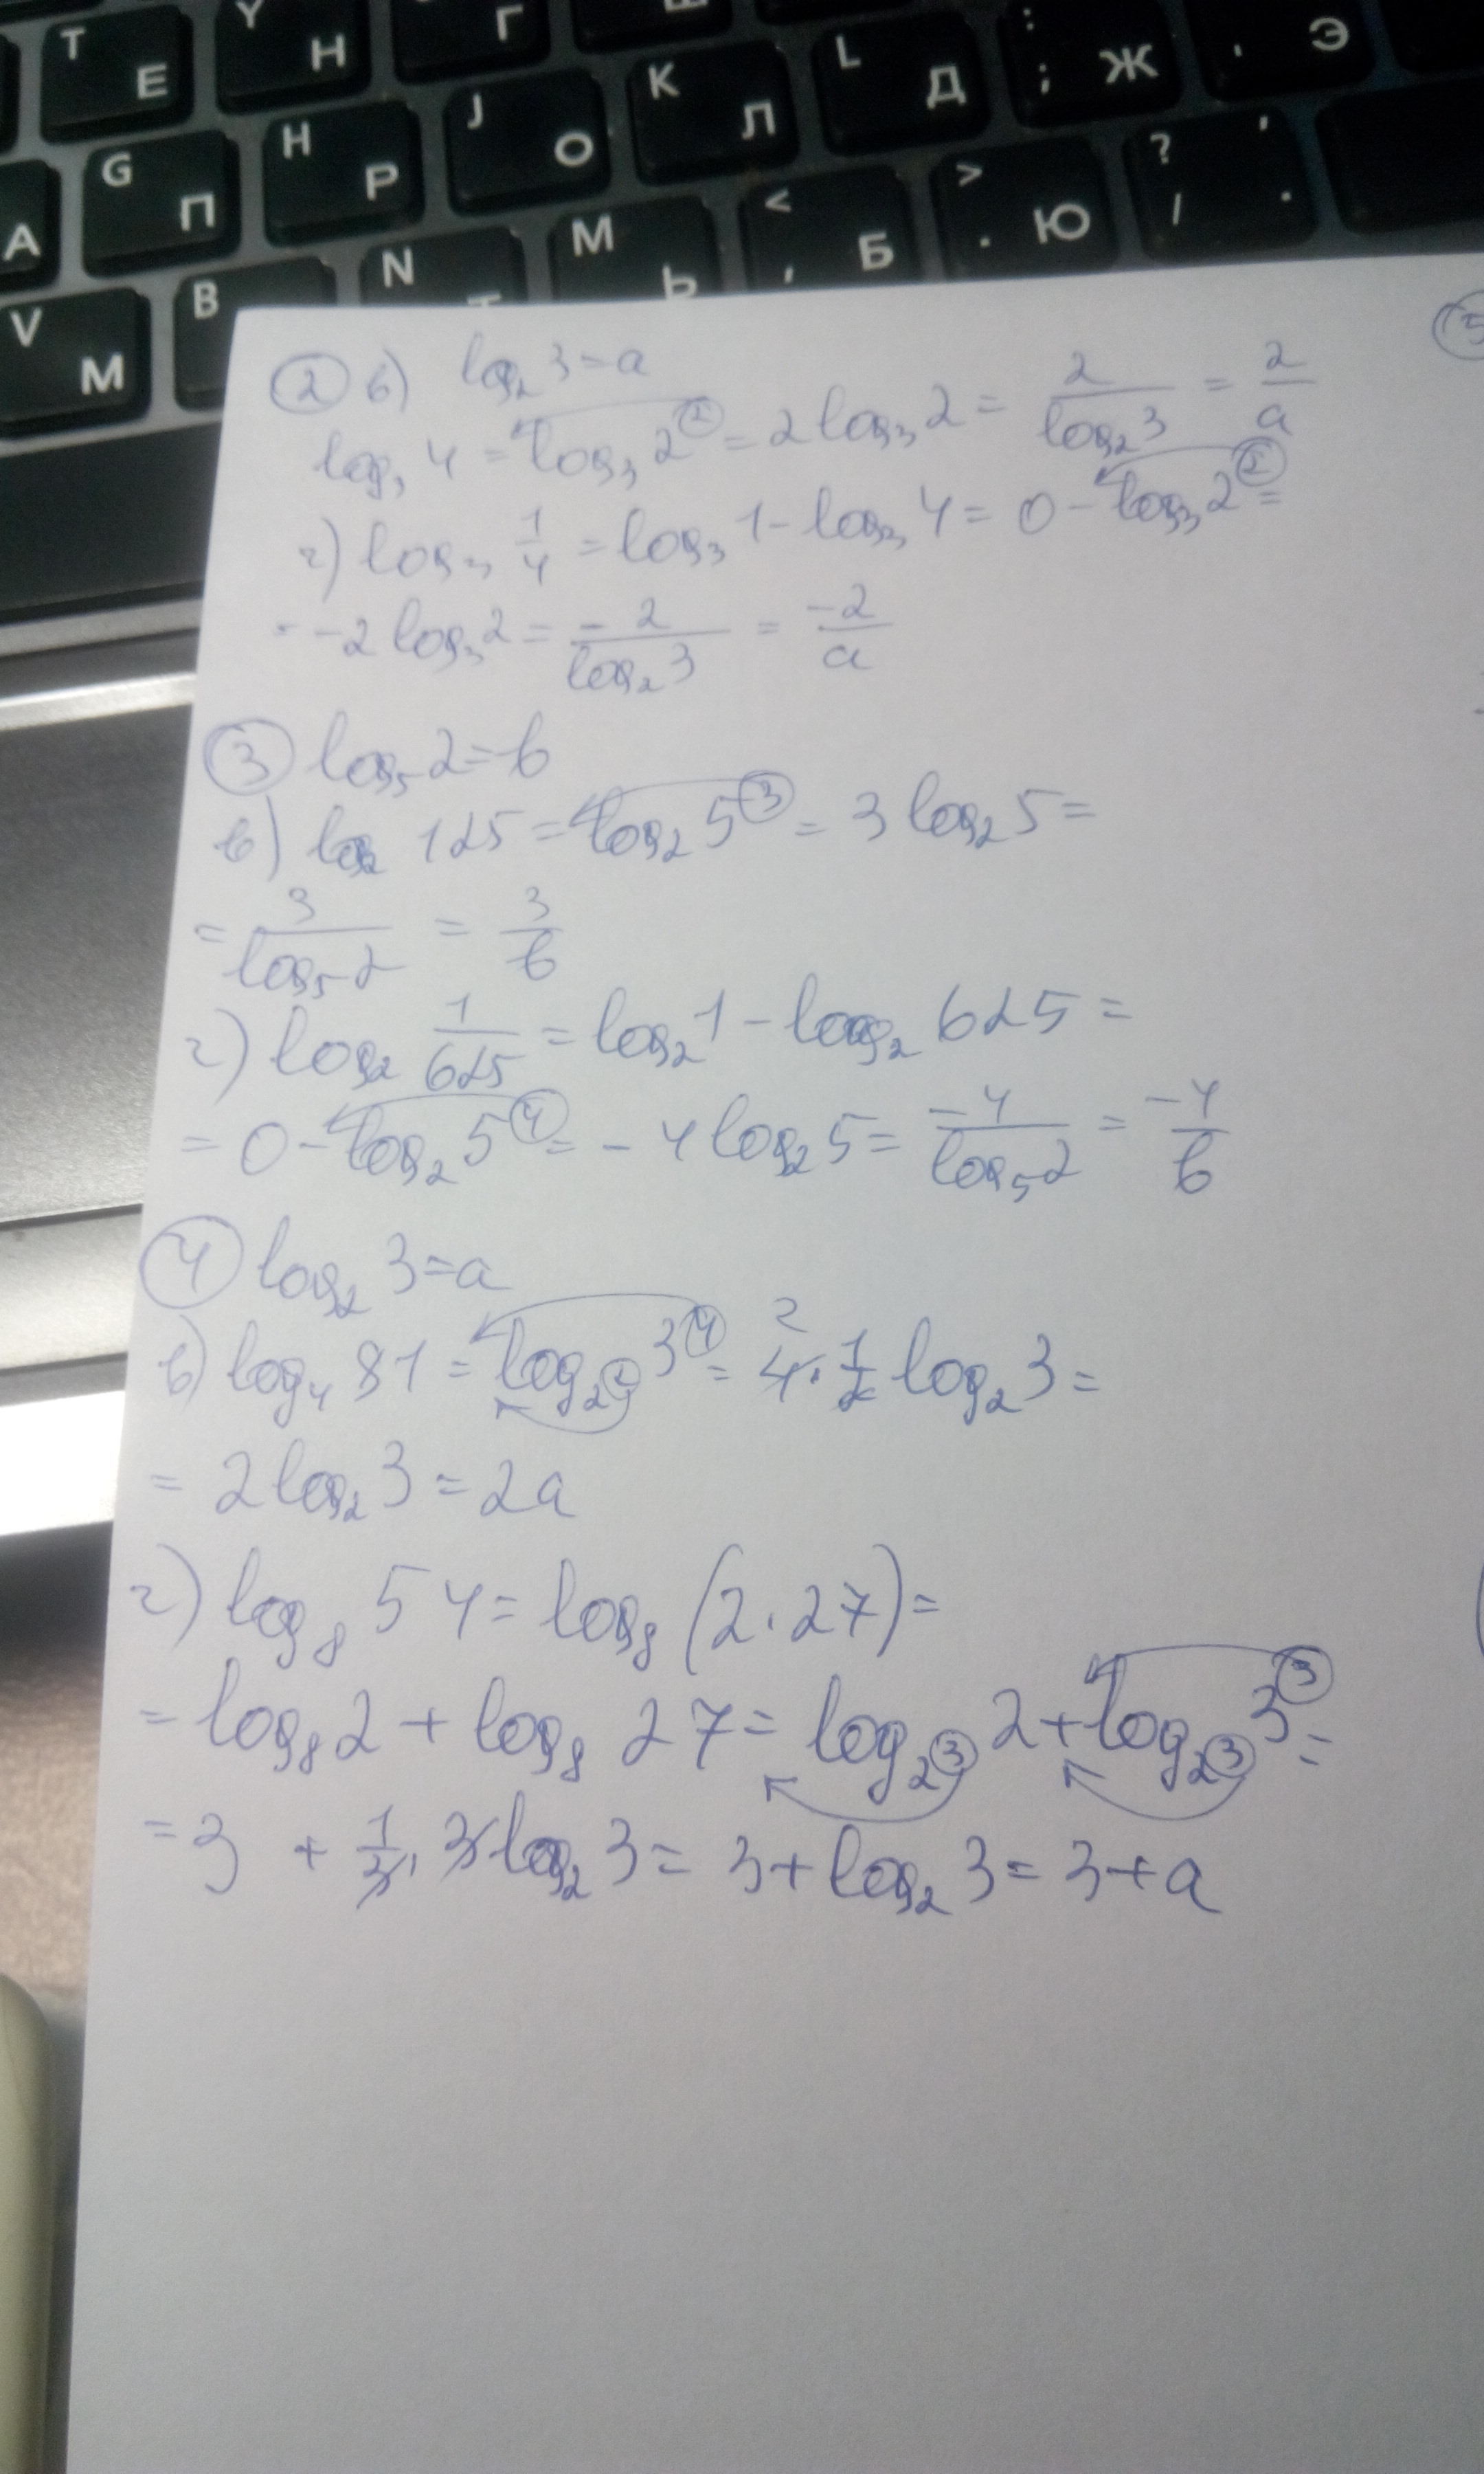 T Е Y Н Г
G П H Р J О K Л L Д : ; Ж ' Э
А V М B N М Ь < , Б > . Ю ? / ' .
② в) log₂ 3 = a
log₃ 4 = log₃ 2² = 2 log₃ 2 = 2/log₂ 3 = 2/a
г) log₃ 1/4 = log₃ 1 - log₃ 4 = 0 - log₃ 2² =
= -2 log₃ 2 = -2/log₂ 3 = -2/a
③ log₅ 2 = b
в) log₂ 125 = log₂ 5³ = 3 log₂ 5 =
= 3/log₅ 2 = 3/b
г) log₂ 1/625 = log₂ 1 - log₂ 625 =
= 0 - log₂ 5⁴ = -4 log₂ 5 = -4/log₅ 2 = -4/b
④ log₂ 3 = a
в) log₄ 81 = log₂² 3⁴ = 4 · 1/2 log₂ 3 =
= 2 log₂ 3 = 2a
г) log₈ 54 = log₈ (2 · 27) =
= log₈ 2 + log₈ 27 = log₂³ 2 + log₂³ 3³ =
= 3 + 1/3 · 3 log₂ 3 = 3 + log₂ 3 = 3 + a